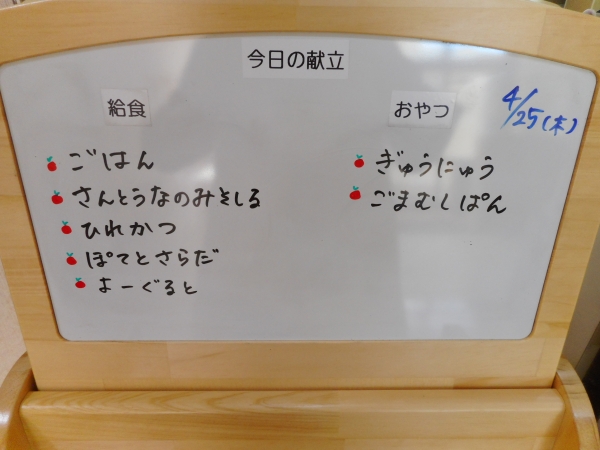 今日の献立
4/25(木)
給食
ごはん
さんとうなのみそしる
ひれかつ
ぽてとさらだ
よーぐると
おやつ
ぎゅうにゅう
ごまむしぱん